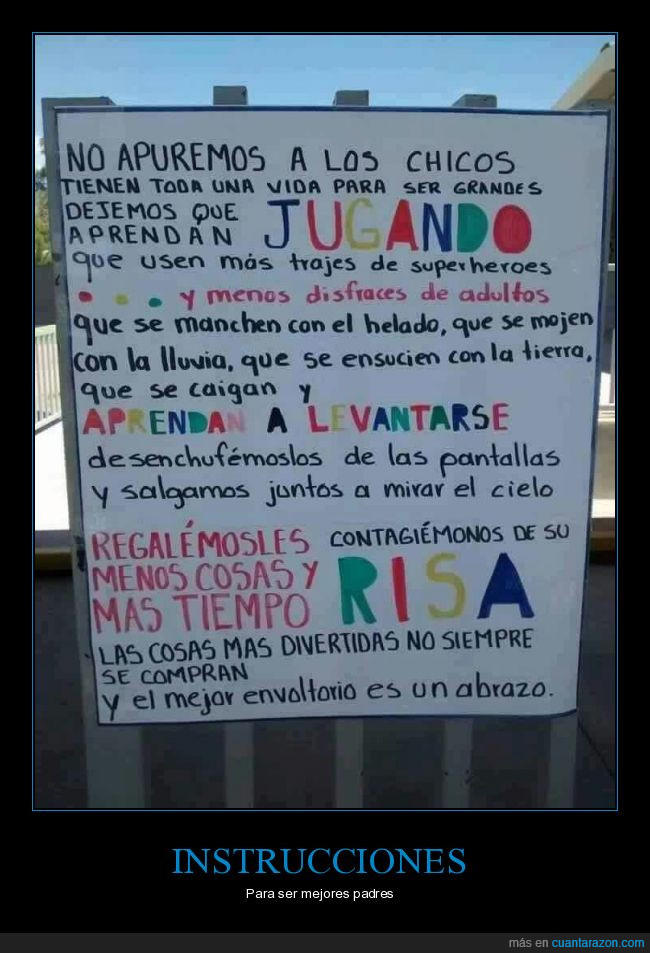 NO APUREMOS A LOS CHICOS
TIENEN TODA UNA VIDA PARA SER GRANDES
DEJEMOS QUE
APRENDAN JUGANDO
que usen más trajes de superheroes
y menos disfraces de adultos
que se manchen con el helado, que se mojen
con la lluvia, que se ensucien con la tierra,
que se caigan y
APRENDAN A LEVANTARSE
desenchufémoslos de las pantallas
y salgamos juntos a mirar el cielo
REGALÉMOSLES
MENOS COSAS Y
MAS TIEMPO
CONTAGIÉMONOS DE SU
RISA
LAS COSAS MAS DIVERTIDAS NO SIEMPRE
SE COMPRAN
y el mejor envoltorio es un abrazo.
INSTRUCCIONES
Para ser mejores padres
más en cuantarazon.com